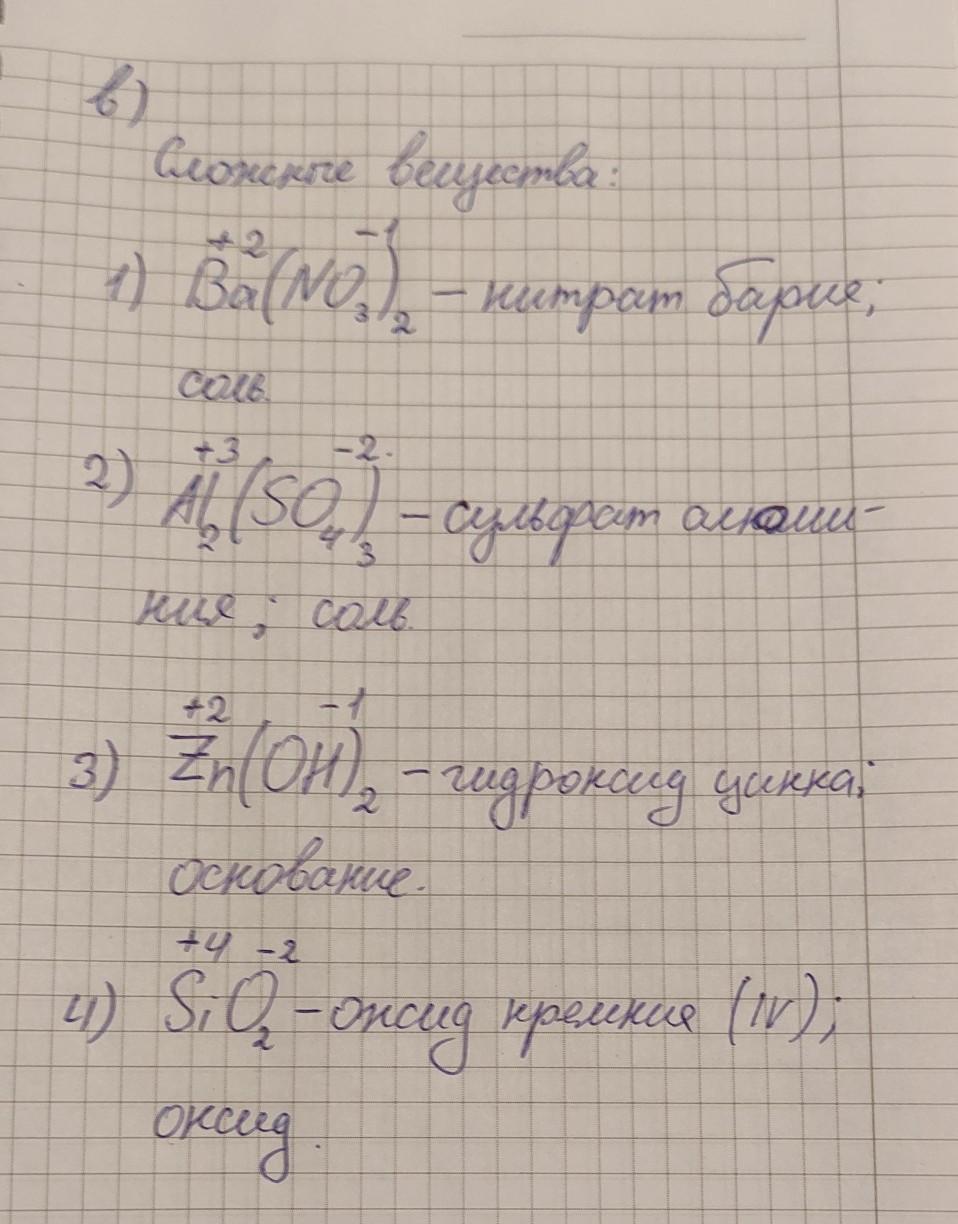 в)
Сложные вещества:
+2 -1
1) Ba(NO₃)₂ – нитрат бария;
соль.
+3 -2.
2) Al₂(SO₄)₃ – сульфат алюми-
ния; соль.
+2 -1
3) Zn(OH)₂ – гидроксид цинка;
основание.
+4 -2
4) SiO₂ – оксид кремния (IV);
оксид.